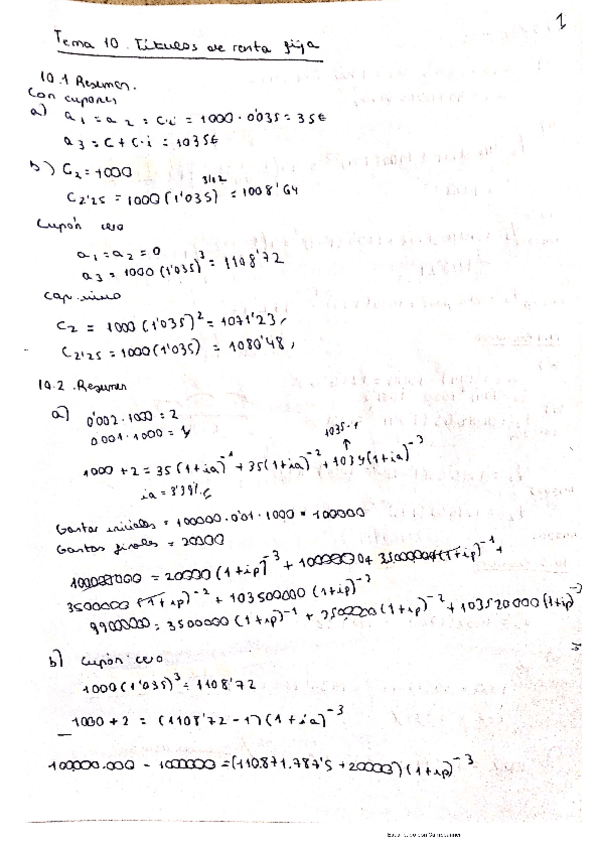 1
Tema 10. Títulos de renta fija
10.1 Resumen.
Con cupones
a) a1 = a2 = C·i = 1000 · 0'035 = 35€
a3 = C + C·i = 1035€
b) C2 = 1000
C2'25 = 1000 (1'035)^3/12 = 1008'64
Cupón cero
a1 = a2 = 0
a3 = 1000 (1'035)^3 = 1108'72
C2 = 1000 (1'035)^2 = 1071'23,
C2'25 = 1000 (1'035) = 1080'48,
10.2. Resumen
a) 0'002 · 1000 = 2
0'001 · 1000 = 1
1035-1
↑
1000 + 2 = 35 (1+ia)^-1 + 35 (1+ia)^-2 + 1034 (1+ia)^-3
ia = 3'39%
Gastos iniciales = 100000 · 0'01 · 1000 = 100000
Gastos finales = 20000
= 20000 (1+ip)^-3 + 3500000 (1+ip)^-1 +
3500000 (1+ip)^-2 + 103500000 (1+ip)^-3
99000000 = 3500000 (1+ip)^-1 + 3500000 (1+ip)^-2 + 103520000 (1+ip)^-3
b) Cupón cero
1000 (1'035)^3 = 1108'72
1000 + 2 = (1108'72 - 1) (1+ia)^-3
100.000.000 - 1000000 = (110.871.787'5 + 20000) (1+ip)^-3